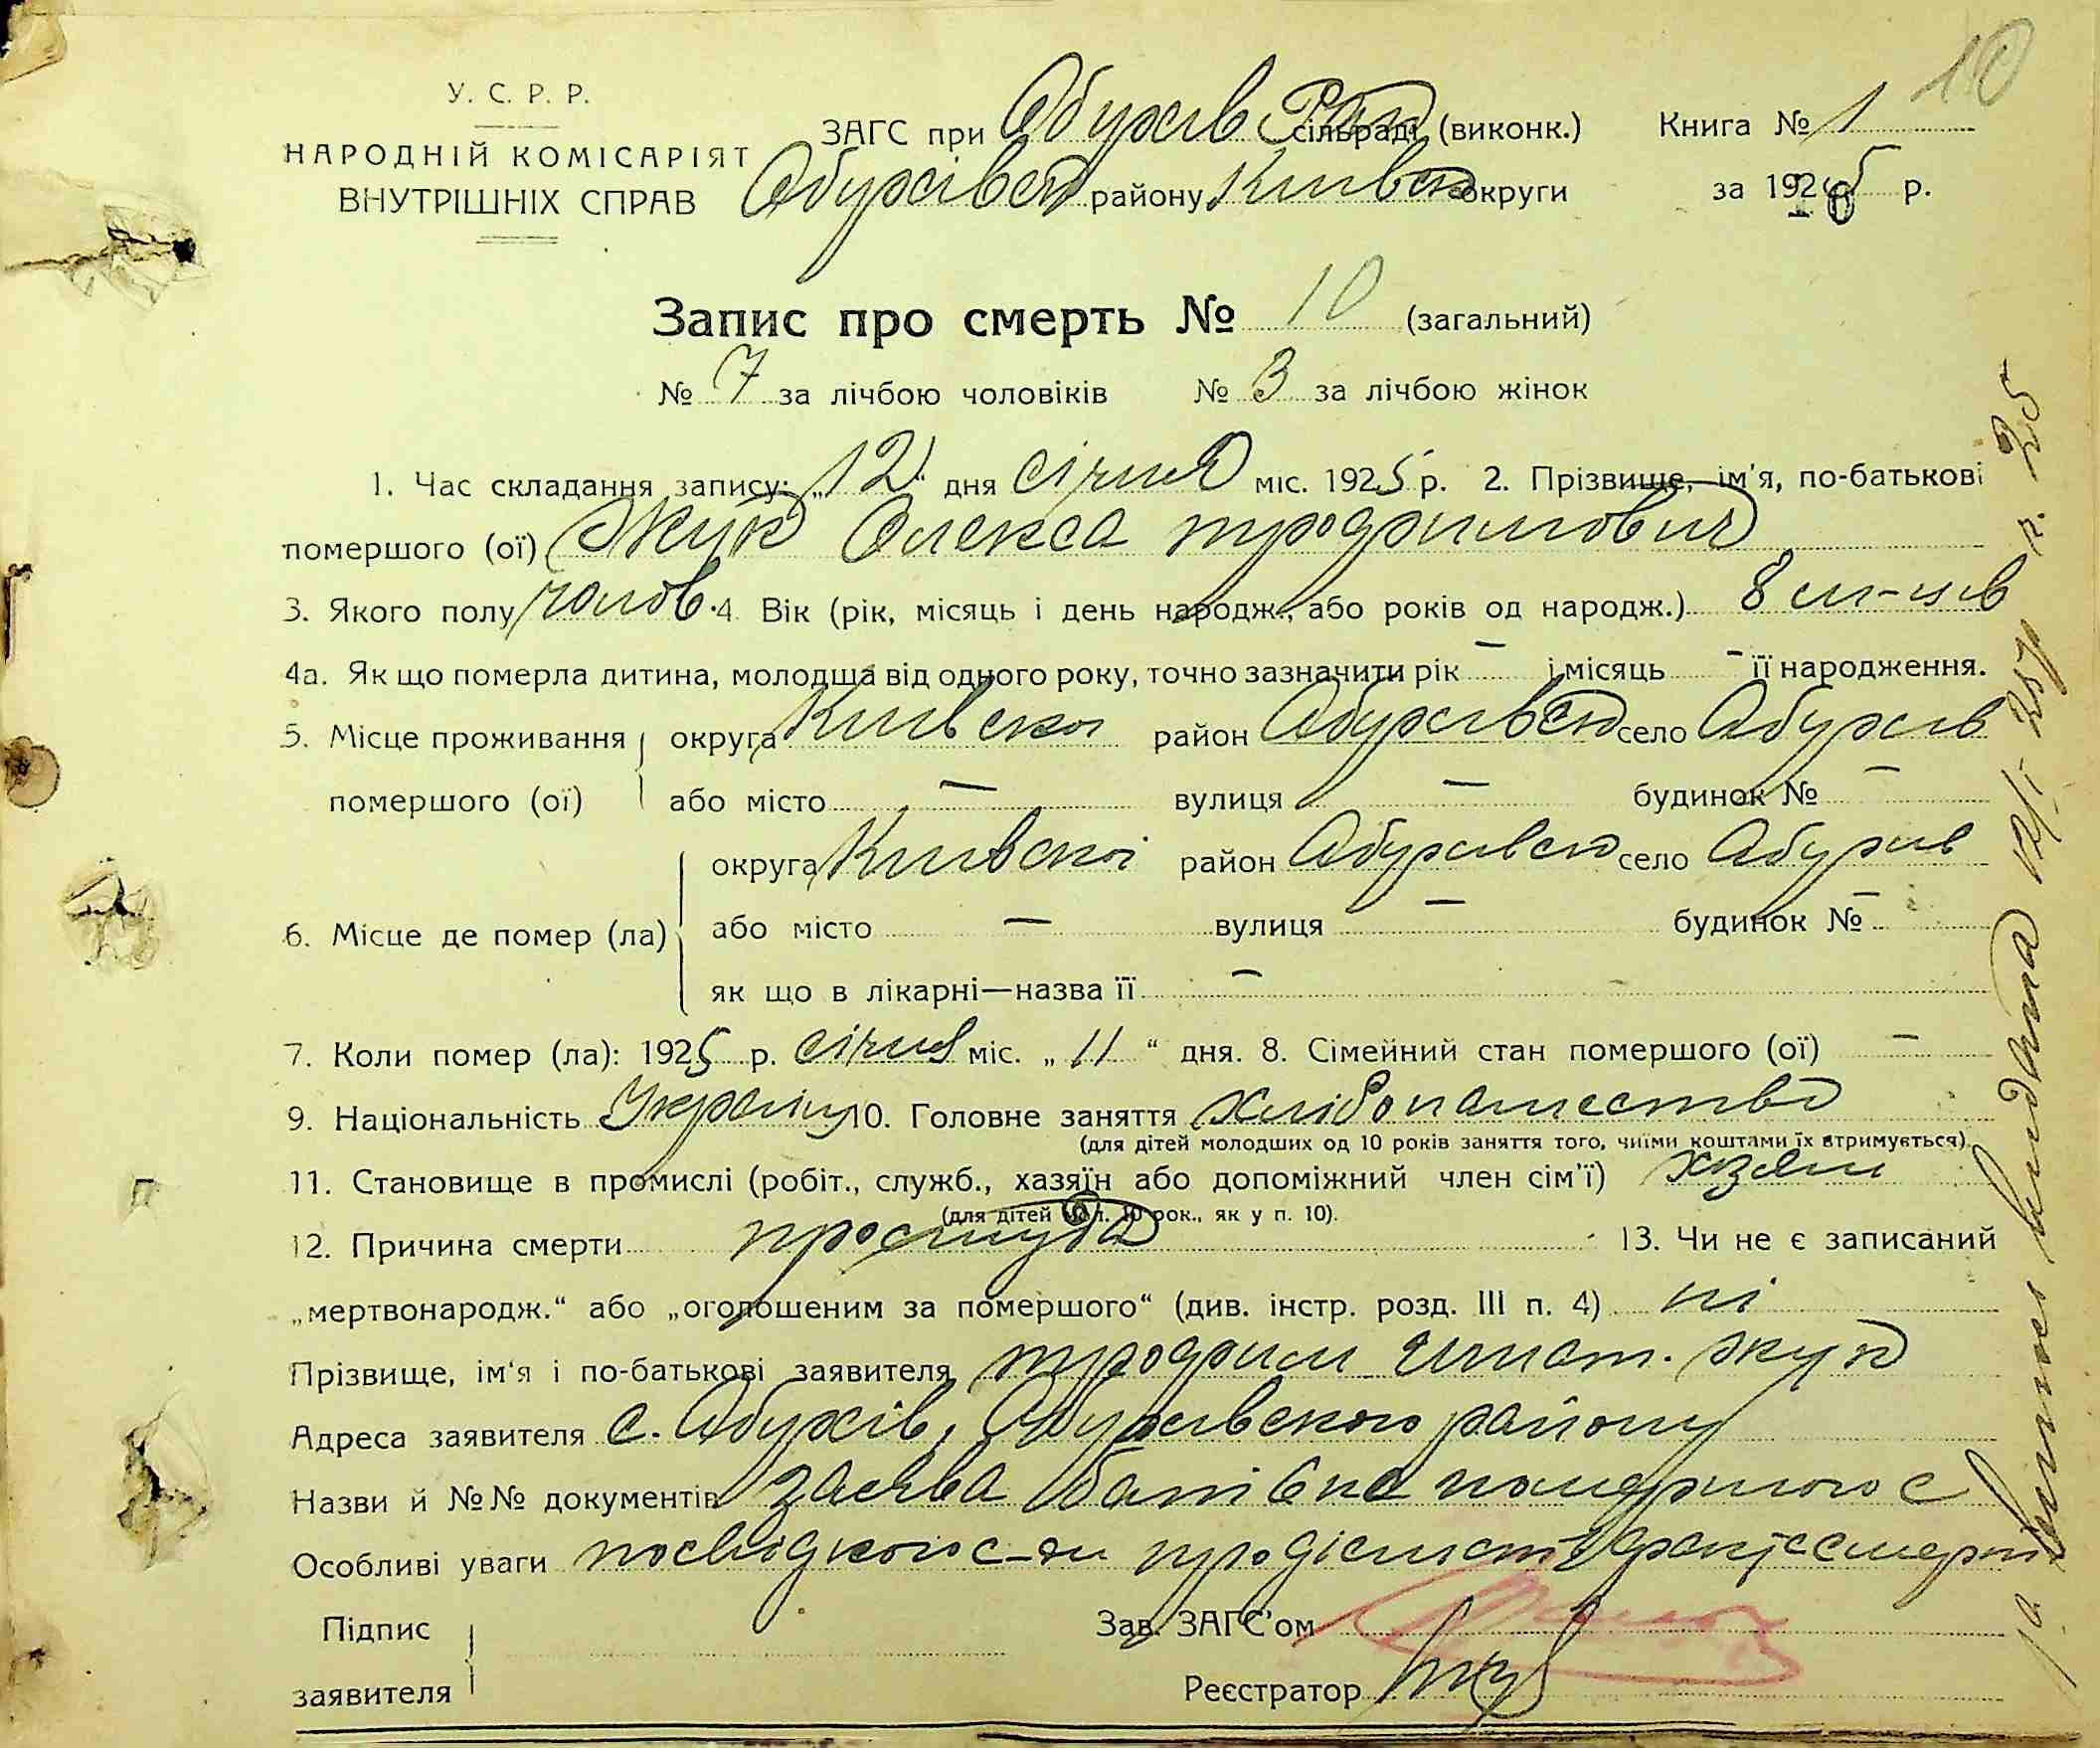 10
У. С. Р. Р.
НАРОДНІЙ КОМІСАРІЯТ
ВНУТРІШНІХ СПРАВ
ЗАГС при Обухів Рай сільраді (виконк.) Книга № 1
Обухівськ району Київськ округи за 1925 р.
Запис про смерть № 10 (загальний)
№ 7 за лічбою чоловіків № 3 за лічбою жінок
1. Час складання запису: „12“ дня січня міс. 1925 р. 2. Прізвище, ім'я, по-батькові
помершого (ої) Жук Олекса трофимович
3. Якого полу чолов. 4. Вік (рік, місяць і день народж., або років од народж.) 8 м-ців
4а. Як що померла дитина, молодша від одного року, точно зазначити рік – і місяць – її народження.
5. Місце проживання округа Київської район Обухівськ село Обухів
помершого (ої) або місто – вулиця – будинок № –
округа Київскої район Обухівськ село Обухів
6. Місце де помер (ла) або місто – вулиця – будинок № –
як що в лікарні—назва її –
7. Коли помер (ла): 1925 р. січня міс. „11“ дня. 8. Сімейний стан помершого (ої) –
9. Національність Україн 10. Головне заняття хлібопашество
(для дітей молодших од 10 років заняття того, чиїми коштами їх втримується)
11. Становище в промислі (робіт., служб., хазяїн або допоміжний член сім'ї) хзяїн
(для дітей мол. 10 рок., як у п. 10).
12. Причина смерти простуда 13. Чи не є записаний
„мертвонародж.“ або „оголошеним за помершого“ (див. інстр. розд. III п. 4) ні
Прізвище, ім'я і по-батькові заявителя трофим Жук
Адреса заявителя с. Обухів, Обухівського району
Назви й №№ документів заява батька помершого с
Особливі уваги посвідкою с-ди про дійсність факта смерти
Підпис Зав. ЗАГС'ом
заявителя Реєстратор
виписъ видана 12/I-25 р.